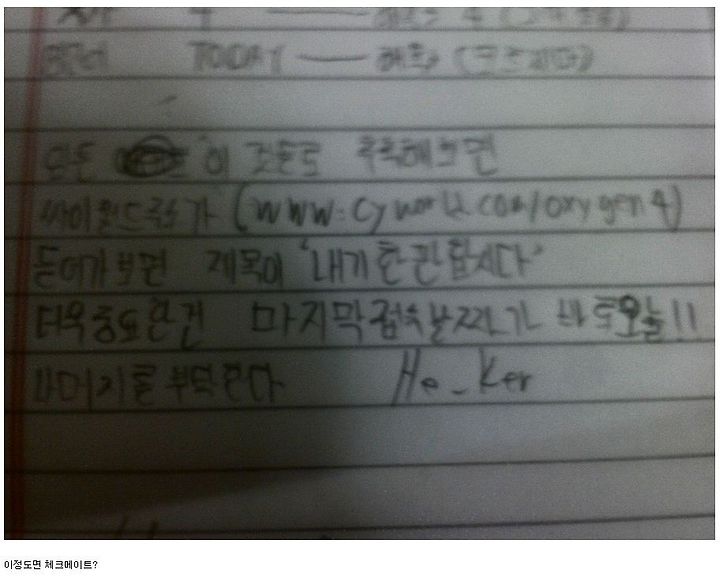 TODAY
이 것들로 추측해보면
싸이월드주소가 (www.cyworld.com/oxygen4)
들어가보면 제목이 '내기한판합시다'
더욱중요한건 마지막접속날짜가 바로오늘!!
나머지를 부탁한다 He_Ker
이정도면 체크메이트?